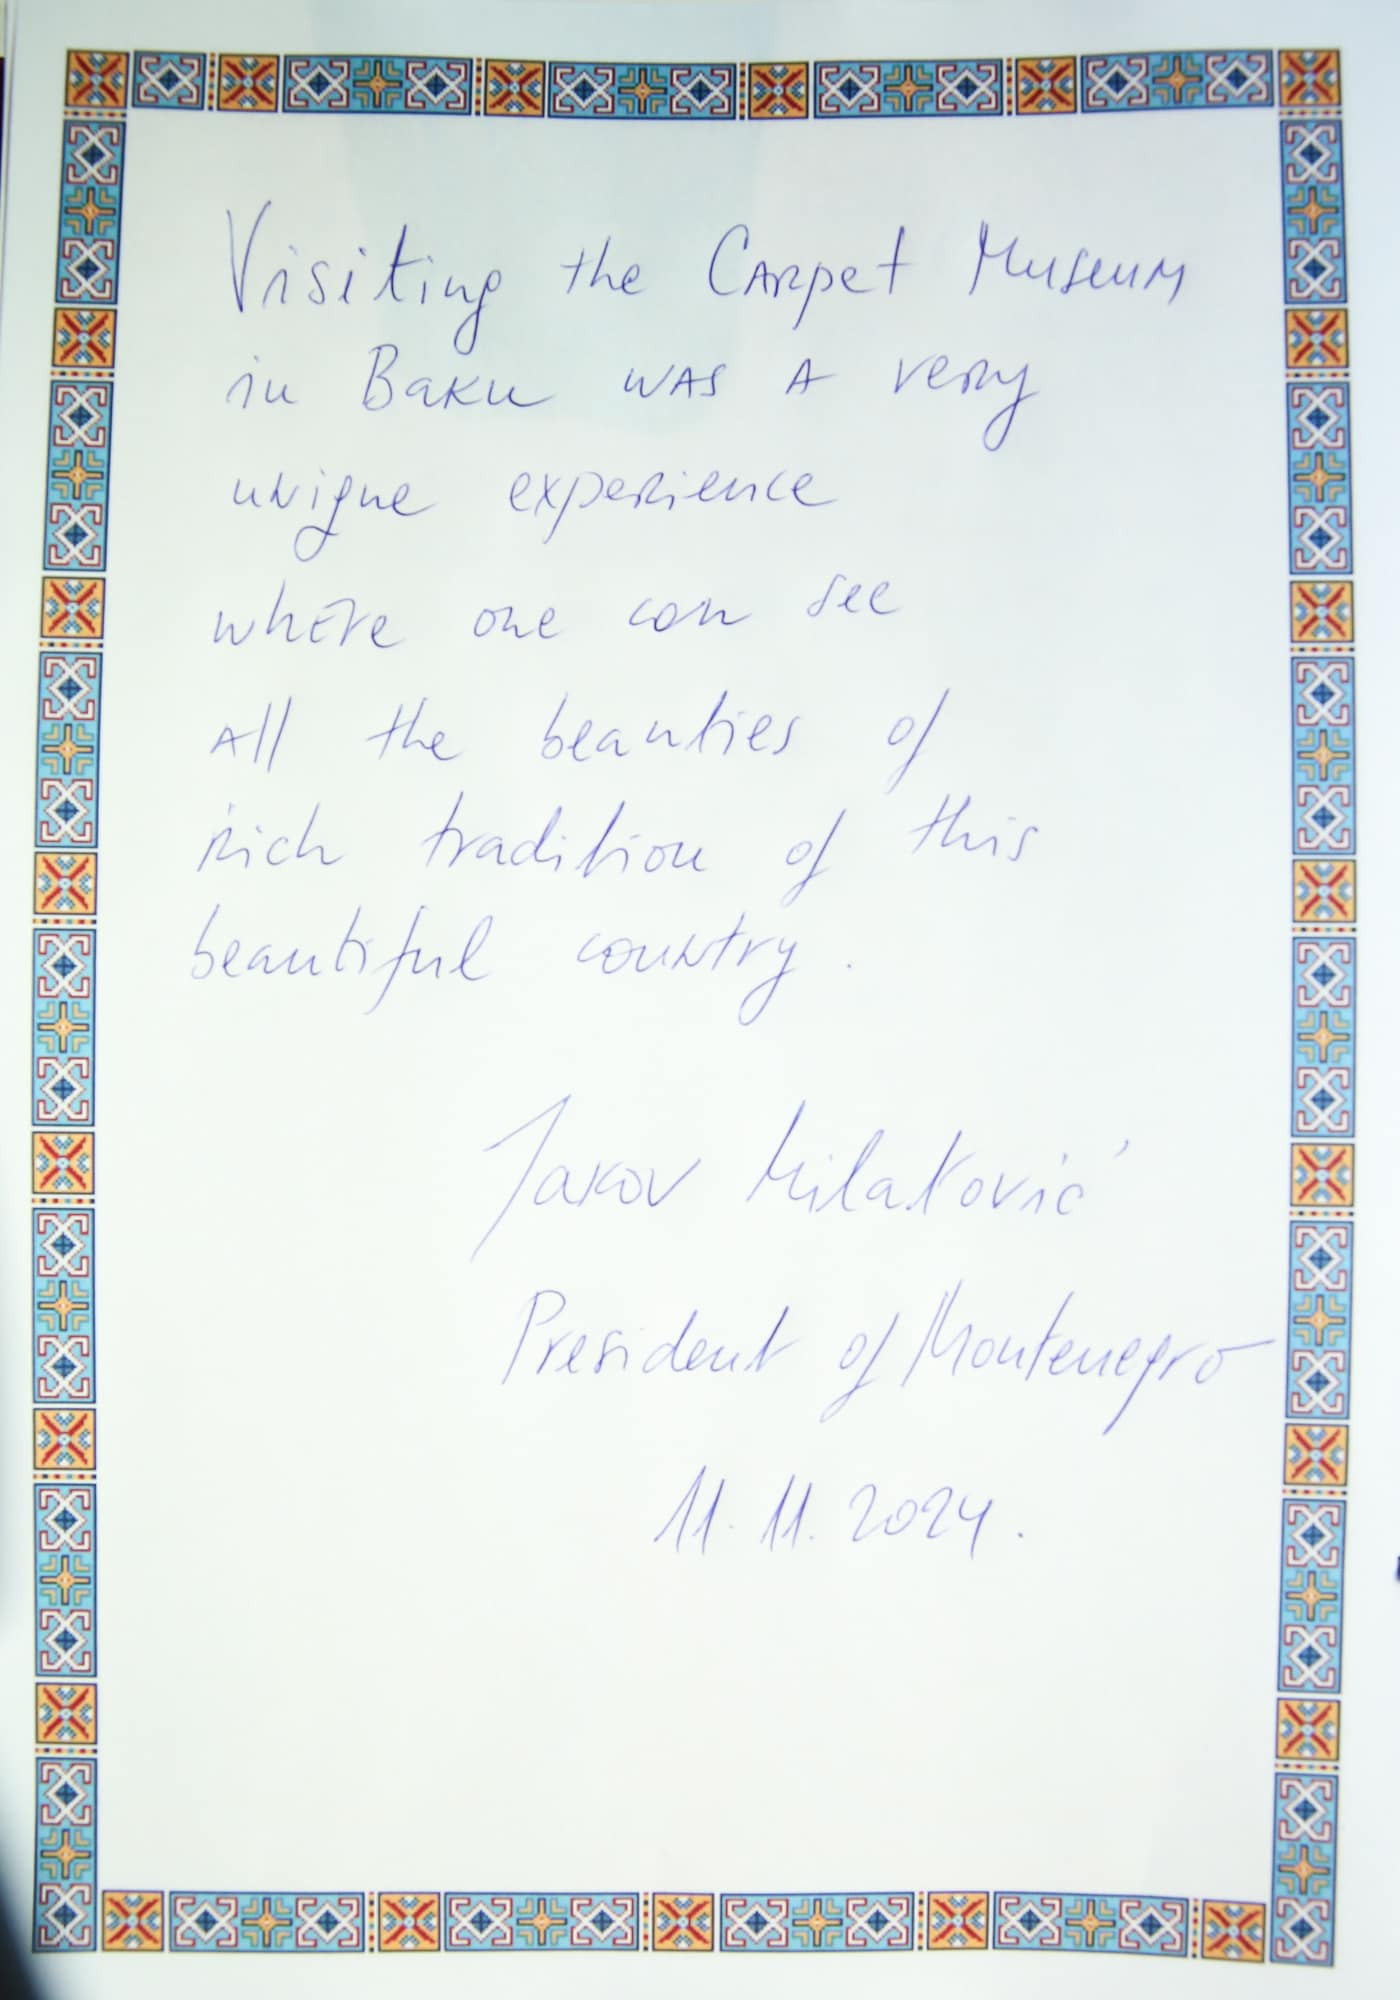 Visiting the Carpet Museum
in Baku was a very
unique experience
where one can see
all the beauties of
rich tradition of this
beautiful country.
Jakov Milatović
President of Montenegro
11.11.2024.